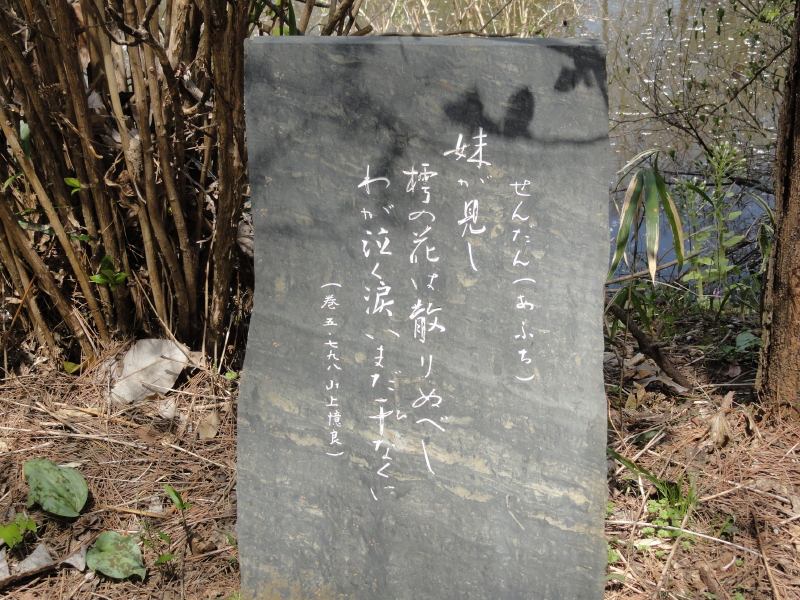 せんだん(あふち)
妹が見し
樗の花は散りぬべし
わが泣く涙いまだ干なくに
(巻五・七九八 山上憶良)